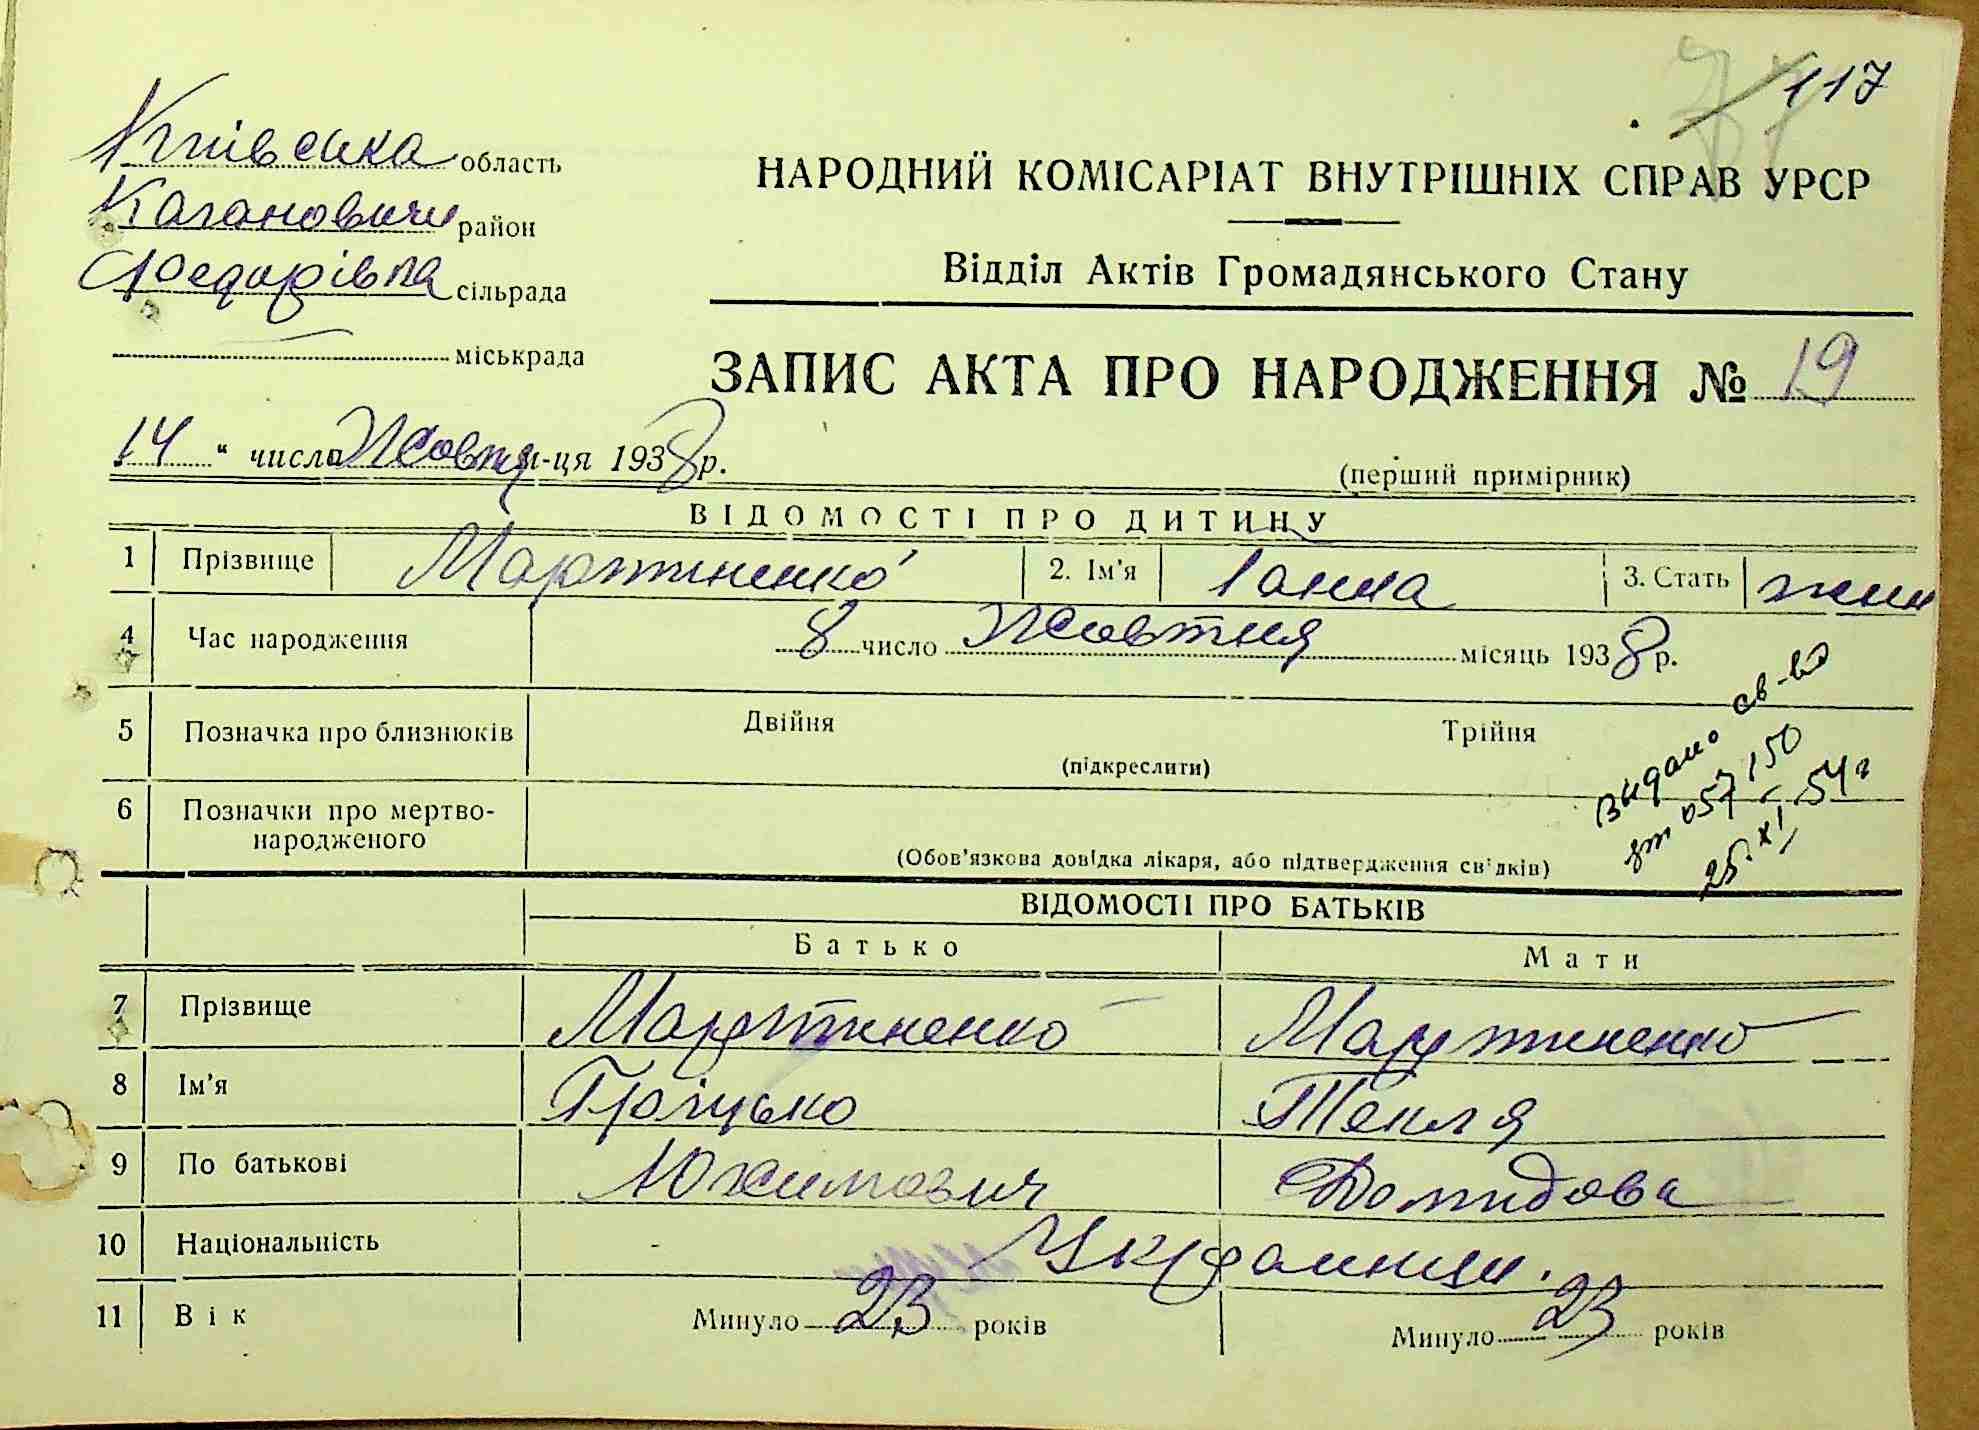 117
Київська область
Каганович район
сільрада
міськрада
НАРОДНИЙ КОМІСАРІАТ ВНУТРІШНІХ СПРАВ УРСР
Відділ Актів Громадянського Стану
ЗАПИС АКТА ПРО НАРОДЖЕННЯ № 19
14 " число Жовтня м-ця 1938 р.
(перший примірник)
ВІДОМОСТІ ПРО ДИТИНУ
1 Прізвище Мартиненко 2. Ім'я Ганна 3. Стать жин
4 Час народження 8 число Жовтня місяць 1938 р.
5 Позначка про близнюків Двійня Трійня
(підкреслити)
6 Позначки про мертво-
народженого
(Обов'язкова довідка лікаря, або підтвердження свідків)
Видано св-во
057150
25.XI-54г
ВІДОМОСТІ ПРО БАТЬКІВ
Батько Мати
7 Прізвище Мартиненко Мартиненко
8 Ім'я Гріцько Текля
9 По батькові Юхимович Домидова
10 Національність Українци.
11 Вік Минуло 23 років Минуло 23 років